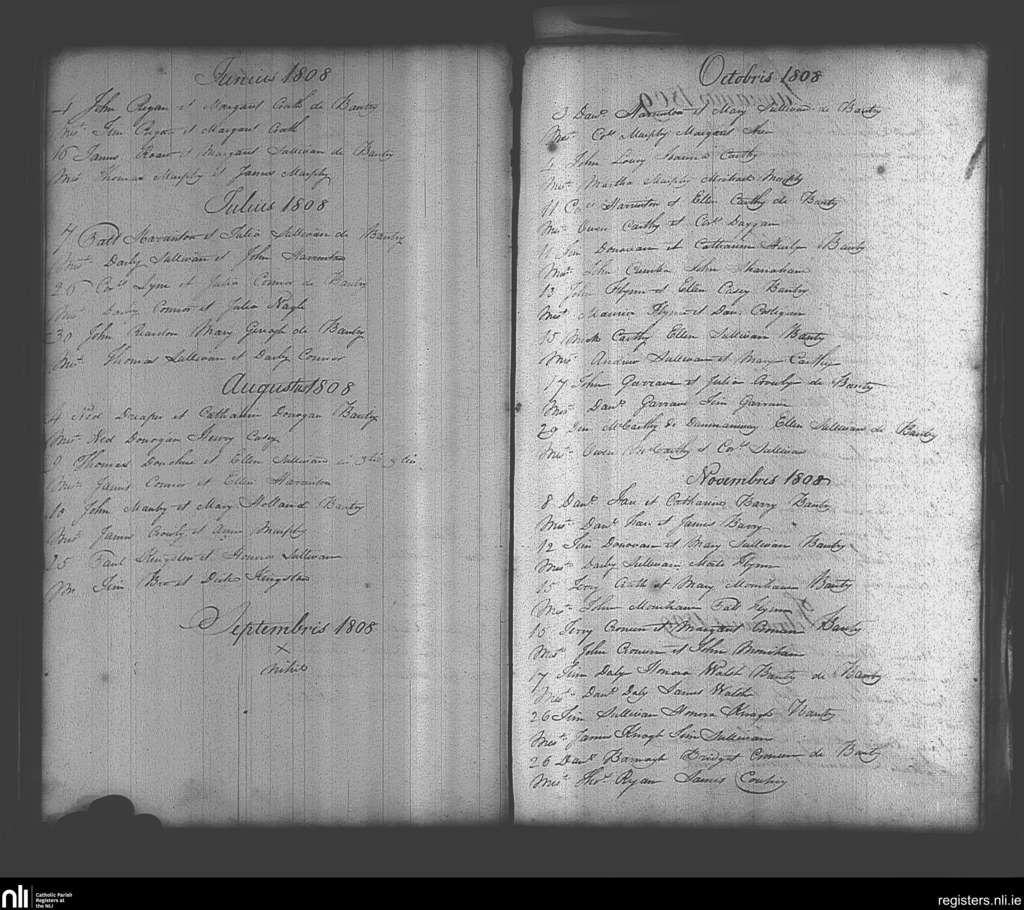 Junius 1808
John Regan et Margaret de Bantry
Mist. Jim Regan et Margaret
16 James et Margaret Sullivan de Bantry
Mist Thomas Murphy et James Murphy
Julius 1808
7 Patt Harrinton et Julia Sullivan de Bantry
Mist. Darby Sullivan et John Harrinton
26 Cors. Lyne et Julia Connor de Bantry
Mist. Darby Connor et Julia Nagle
30 John Reardon Mary de Bantry
Mist. Thomas Sullivan et Darby Connor
Augustus 1808
4 Ned Draper et Catharine Donogan Bantry
Mist. Ned Donogan Henry Casey
9 Thomas Donohue et Ellen Sullivan
Mist. James Connor et Ellen Harrinton
10 John Manby et Mary Holland Bantry
Mist. James Crowly et Ann Murphy
25 Paul Kingston et Honora Sullivan
Jim et Dick Kingston
Septembris 1808
×
nihil
Octobris 1808
3 Danl. Harrinton et Mary Sullivan de Bantry
Mist. Cors Murphy Margaret
John Lowry Joanna Carthy
Mist. Martha Murphy Michael Murphy
11 Cors. Harrinton et Ellen Carthy de Bantry
Mist. Owen Carthy et Cors. Duggan
11 Jim Donovan et Catharine Bantry
Mist. John John Shanahan
13 John Flynn et Ellen Casey Bantry
Mist. Maurice Flynn et Danl.
15 Mick Carthy Ellen Sullivan Bantry
Mist. Andrew Sullivan et Mary Carthy
17 John Garrave et Julia Crowly de Bantry
Mist. Danl. Garrave Jim Garrave
29 McCarthy de Dunmanway Ellen Sullivan de Bantry
Mist. Owen McCarthy et Cors. Sullivan
Novembris 1808
8 Danl. et Catharine Barry Bantry
Mist. Danl. et James Barry
12 Jim Donovan et Mary Sullivan Bantry
Mist. Darby Sullivan Flynn
15 Terry et Mary Monihane Bantry
Mist. John Monihane Patt Flynn
15 Terry Croneen et Margaret Bantry
Mist. John Croneen et John Monihane
17 Jim Daly Honora Walsh Bantry de Bantry
Mist. Danl. Daly James Walsh
26 Jim Sullivan Honora Bantry
Mist. James Jim Sullivan
26 Danl. Barnagh Bridget Croneen de Bantry
Mist. Thos. Ryan James
nli
Catholic Parish
Registers at
the NLI
registers.nli.ie